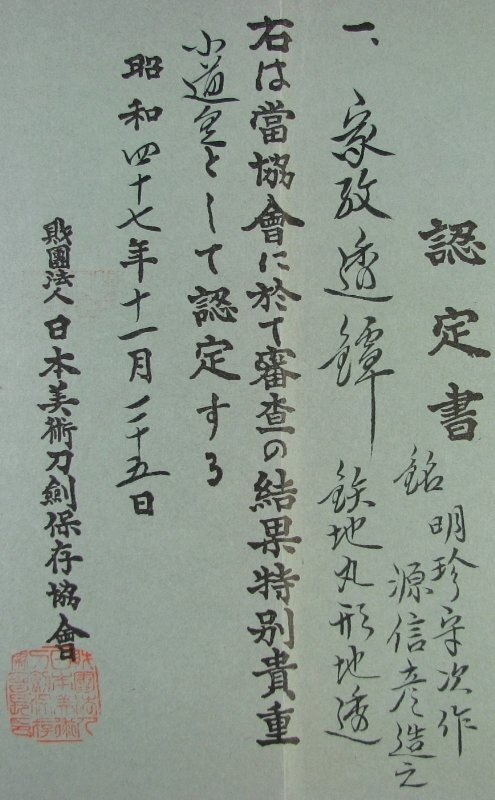 認定書
銘 明珍守次作
源信彦造之
一、家紋透鐔 鉄地丸形地透
右は當協會に於て審査の結果特別貴重
小道具として認定する
昭和四十七年十一月二十五日
財團法人日本美術刀劍保存協會